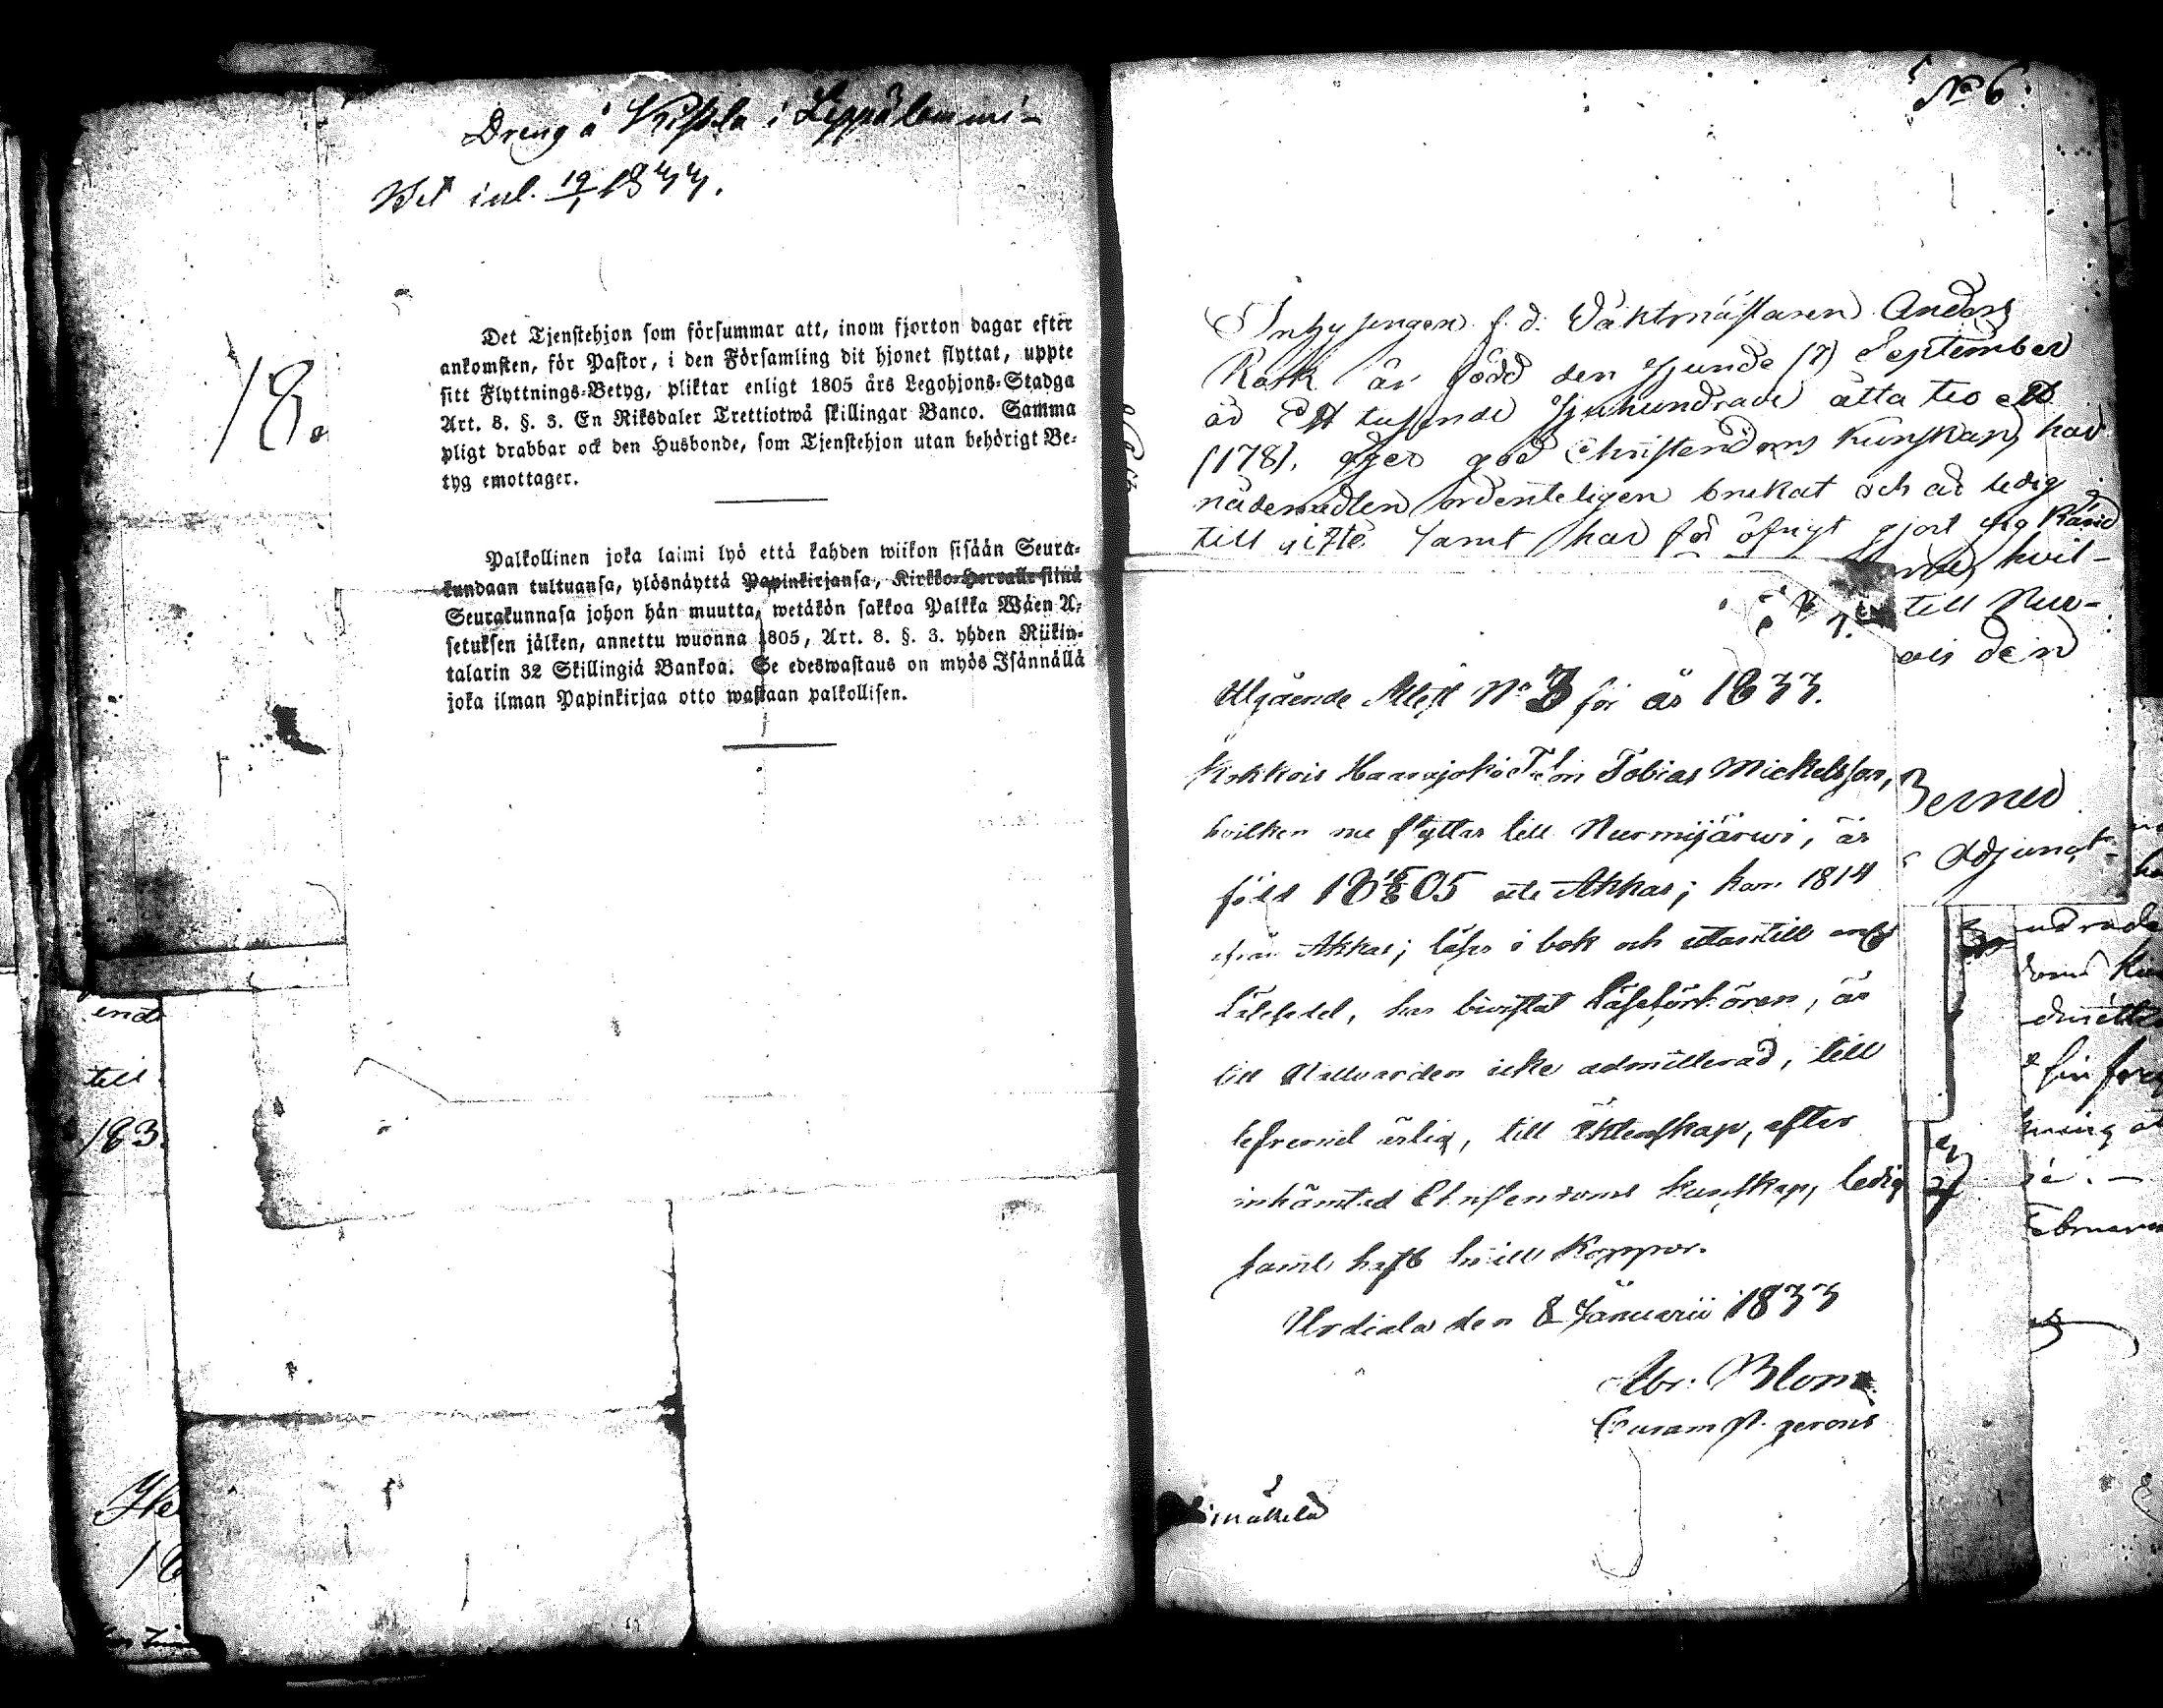 Dreng å Kistila i Leppälammi
Bet inl. 19/1 1833.
18.
Det Tjenstehjon som försummar att, inom fjorton dagar efter
ankomsten, för Pastor, i den Församling dit hjonet flyttat, uppte
sitt Flyttnings-Betyg, pliktar enligt 1805 års Legohjons-Stadga
Art. 8. §. 3. En Riksdaler Trettiotwå skillingar Banco. Samma
pligt drabbar ock den Husbonde, som Tjenstehjon utan behörigt Be-
tyg emottager.
Palkollinen joka laimi lyö että kahden wiikon sisään Seura-
kundaan tultuansa, ylösnäyttä Papinkirjansa, Kirkko-Herralle siinä
Seurakunnasa johon hän muutta, wetäkön sakkoa Palkka Wäen A-
setuksen jälken, annettu wuonna 1805, Art. 8. §. 3. yhden Riikin-
talarin 32 Skillingiä Bankoa. Se edeswastaus on myös Isännällä
joka ilman Papinkirjaa otto wastaan palkollisen.
end
till
183
No 6.
Inhysingen f. d. Vaktmästaren Anders
Rask är född den sjunde (7) September
år Ett tusende Sjuhundrade åtta tio ett
(1781, äger god Christendoms Kunskap, har
nådemedlen ordenteligen brukat och är ledig
till gifte samt har för öfrigt gjort sig känd
hvil-
till Nur-
den
Berner
Adjunct
Utgående Attest No 3 för år 1833.
Kokkois Haarajoki Tobias Mickelsson,
hvilken nu flyttar till Nurmijärwi, är
född 1805 uti Akkas; kom 1814
ifrån Akkas; läser i bok och utantill
har biwistat Läseförhören, är
till Nattvarden icke admitterad, till
lefverned ärlig, till äktenskap, efter
inhämtad Christendoms kunskap, ledig
samt haft Koppor.
Urdiala den 8 Januarii 1833
Abr: Blom